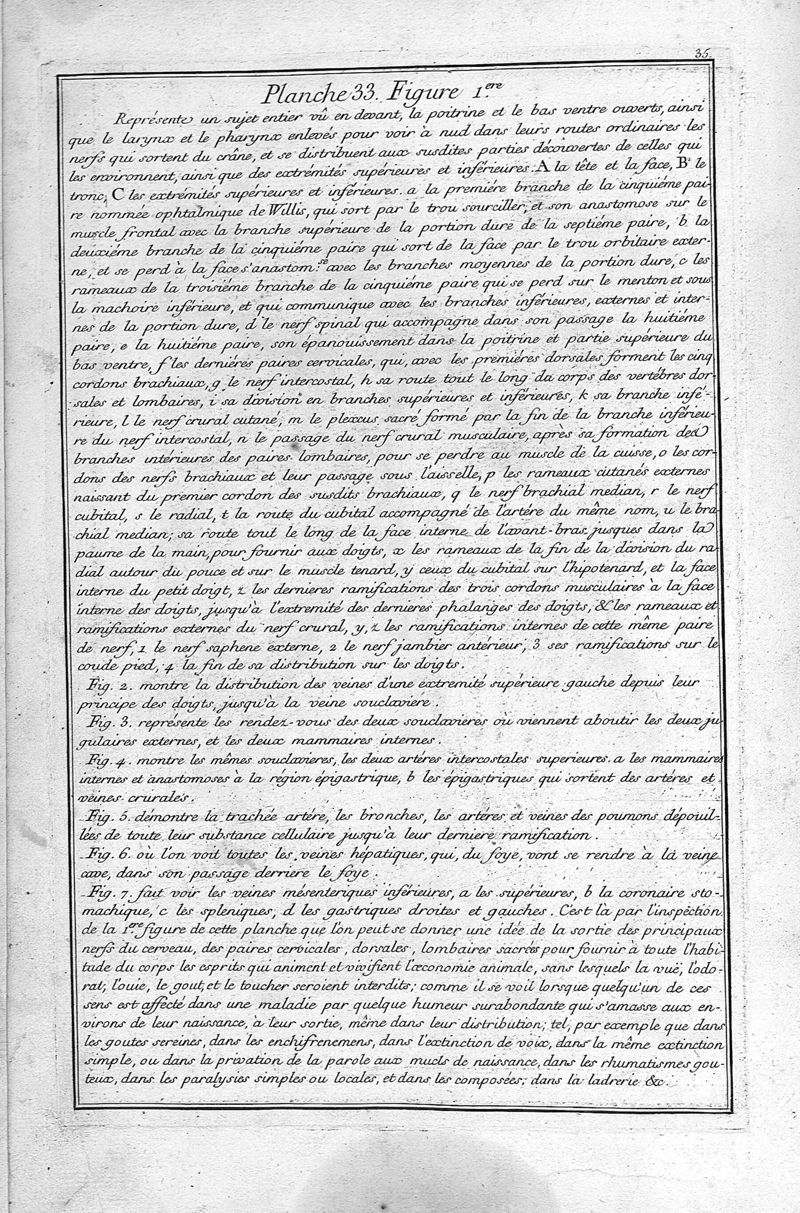 35.
Planche 33. Figure 1.ere
Représente un sujet entier vû en devant, la poitrine et le bas ventre ouverts, ainsi
que le larynx et le pharynx enlevés pour voir à nud dans leurs routes ordinaires les
nerfs qui sortent du crâne, et se distribuent aux susdites parties découvertes de celles qui
les environnent, ainsi que des extrémités supérieures et inférieures. A la tête et la face, B. le
tronc, C les extrémités supérieures et inférieures. a la première branche de la cinquiéme pai-
re nommée ophtalmique de Willis, qui sort par le trou sourciller, et son anastomose sur le
muscle frontal avec la branche supérieure de la portion dure de la septiéme paire, b. la
deuxiéme branche de la cinquiéme paire qui sort de la face par le trou orbitaire exter-
ne, et se perd à la face s'anastom.se avec les branches moyennes de la portion dure, c les
rameaux de la troisiéme branche de la cinquiéme paire qui se perd sur le menton et sous
la machoire inférieure, et qui communique avec les branches inférieures, externes et inter-
nes de la portion dure, d le nerf spinal qui accompagne dans son passage la huitiéme
paire, e la huitiéme paire, son épanouissement dans la poitrine et partie supérieure du
bas ventre, f les derniéres paires cervicales, qui, avec les premiéres dorsales forment les cinq
cordons brachiaux, g le nerf intercostal, h sa route tout le long du corps des vertébres dor-
sales et lombaires, i sa division en branches supérieures et inférieures, k sa branche infé-
rieure, l le nerf crural cutané, m le plexcus sacré formé par la fin de la branche inférieu-
re du nerf intercostal, n le passage du nerf crural musculaire, après sa formation des
branches intérieures des paires lombaires, pour se perdre au muscle de la cuisse, o les cor-
dons des nerfs brachiaux et leur passage sous l'aisselle, p les rameaux cutanés externes
naissant du premier cordon des susdits brachiaux, q le nerf brachial median, r le nerf
cubital, s le radial, t la route du cubital accompagné de l'artére du même nom, u le bra-
chial median; sa route tout le long de la face interne de l'avant-bras, jusques dans la
paume de la main, pour fournir aux doigts, x les rameaux de la fin de la division du ra-
dial autour du pouce et sur le muscle tenard, y ceux du cubital sur l'hipotenard, et la face
interne du petit doigt, z les dernieres ramifications des trois cordons musculaires à la face
interne des doigts, jusqu'à l'extremité des dernieres phalanges des doigts, & les rameaux et
ramifications externes du nerf crural, y, z les ramifications internes de cette même paire
de nerf, 1 le nerf saphene externe, 2 le nerf jambier antérieur, 3 ses ramifications sur le
coude pied, 4 la fin de sa distribution sur les doigts.
Fig. 2. montre la distribution des veines d'une extremité supérieure gauche depuis leur
principe des doigts, jusqu'à la veine souclaviere.
Fig. 3. représente les rendez-vous des deux souclavieres où viennent aboutir les deux ju-
gulaires externes, et les deux mammaires internes.
Fig. 4. montre les mêmes souclavieres, les deux artéres intercostales superieures. a les mammaires
internes et anastomoses à la région épigastrique, b les épigastriques qui sortent des artéres et
veines crurales.
Fig. 5. démontre la trachée artére, les bronches, les artéres et veines des poumons dépouil-
lées de toute leur substance cellulaire jusqu'à leur derniere ramification.
Fig. 6. où l'on voit toutes les veines hépatiques, qui, du foye, vont se rendre à la veine
cave, dans son passage derriere le foye.
Fig. 7. fait voir les veines mésenteriques inférieures, a les supérieures, b la coronaire sto-
machique, c les spleniques, d les gastriques droites et gauches. C'est là par l'inspèction
de la 1.ere figure de cette planche que l'on peut se donner une idée de la sortie des principaux
nerfs du cerveau, des paires cervicales, dorsales, lombaires sacrées pour fournir à toute l'habi-
tude du corps les esprits qui animent et vivifient l'œconomie animale, sans lesquels la vuë, l'odo-
rat, l'ouie, le gout, et le toucher seroient interdits; comme il se voit lorsque quelqu'un de ces
sens est affecté dans une maladie par quelque humeur surabondante qui s'amasse aux en-
virons de leur naissance, à leur sortie, même dans leur distribution; tel, par exemple que dans
les goutes sereines, dans les enchifrenemens, dans l'extinction de voix, dans la même extinction
simple, ou dans la privation de la parole aux muets de naissance, dans les rhumatismes gou-
teux, dans les paralysies simples ou locales, et dans les composées; dans la ladrerie &c.